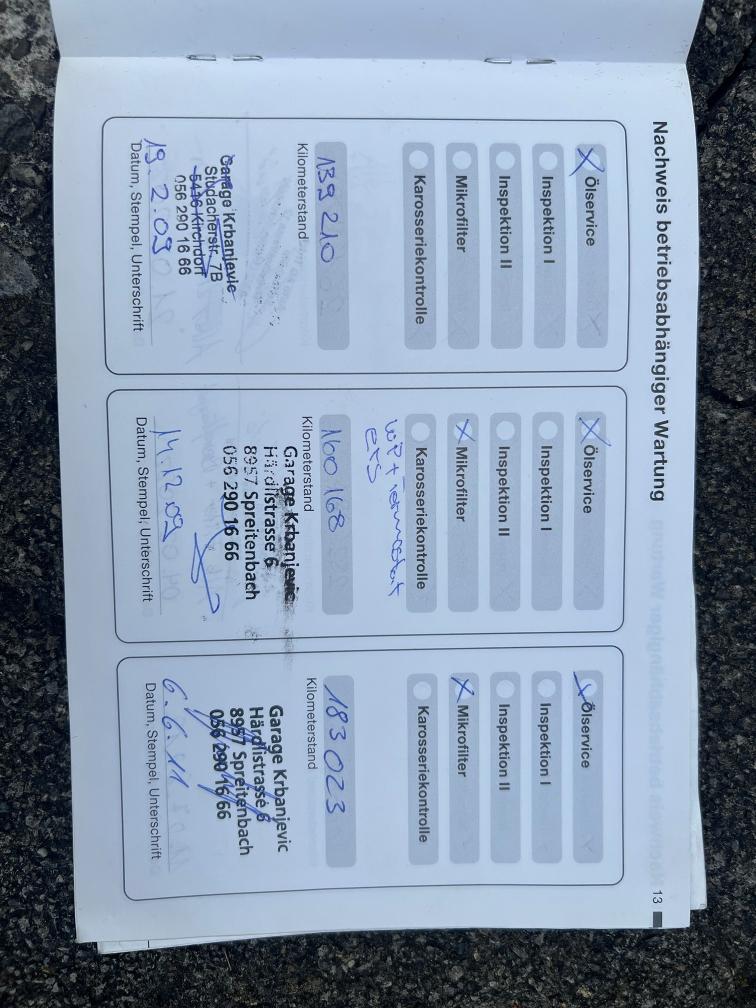 Nachweis betriebsabhängiger Wartung
13
X Ölservice
Inspektion I
Inspektion II
Mikrofilter
Karosseriekontrolle
139 210
Kilometerstand
Garage Krbanjevic
7B
5416 Kirchdorf
056 290 16 66
19.2.09
Datum, Stempel, Unterschrift
X Ölservice
Inspektion I
Inspektion II
X Mikrofilter
Karosseriekontrolle
WP + Termostat
160 168
Kilometerstand
Garage Krbanjevic
Härdlistrasse 6
8957 Spreitenbach
056 290 16 66
14.12.09
Datum, Stempel, Unterschrift
X Ölservice
Inspektion I
Inspektion II
X Mikrofilter
Karosseriekontrolle
183 023
Kilometerstand
Garage Krbanjevic
Härdlistrasse 6
8957 Spreitenbach
056 290 16 66
6.6.11
Datum, Stempel, Unterschrift